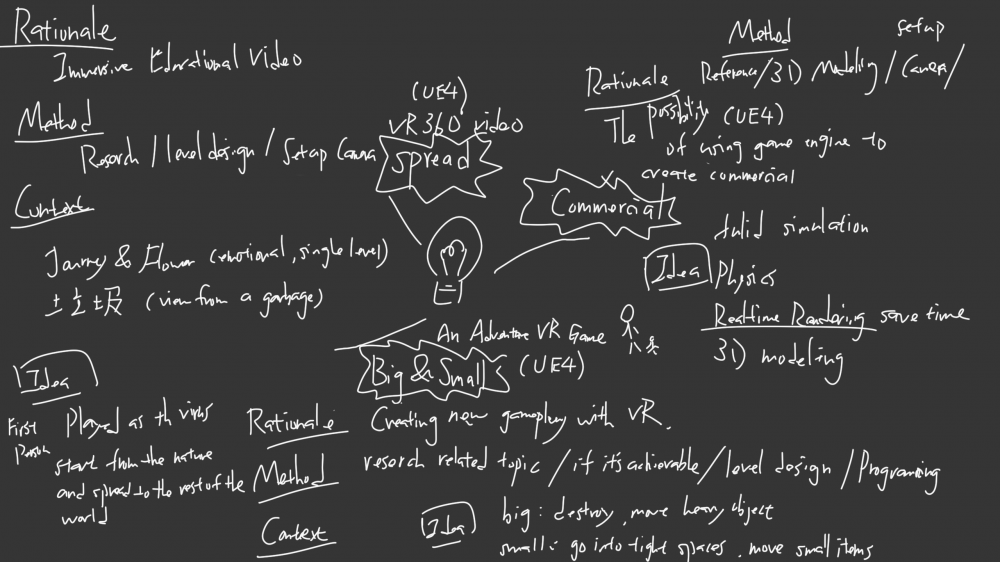 Rationale
Immersive Educational Video
Method
Research / level design / Setup Camera
Context
Journey & Flower (emotional, single level)
(view from a garbage)
Idea
First Person
Played as th virus
start from the nature
and spread to the rest of the
world
(UE4)
VR 360 video
Spread
Commercial
Method
setup
Reference/3D Modeling / Camera/
Rationale
The possibility (UE4)
of using game engine to
create commercial
simulation
Idea
Physics
Realtime Rendering save time
3D modeling
An Adventure VR Game
Big & Small (UE4)
Rationale
Creating new gameplay with VR.
Method
research related topic / if it's achievable / level design / Programing
Context
Idea
big: destroy, move heavy object
small: go into tight spaces, move small items